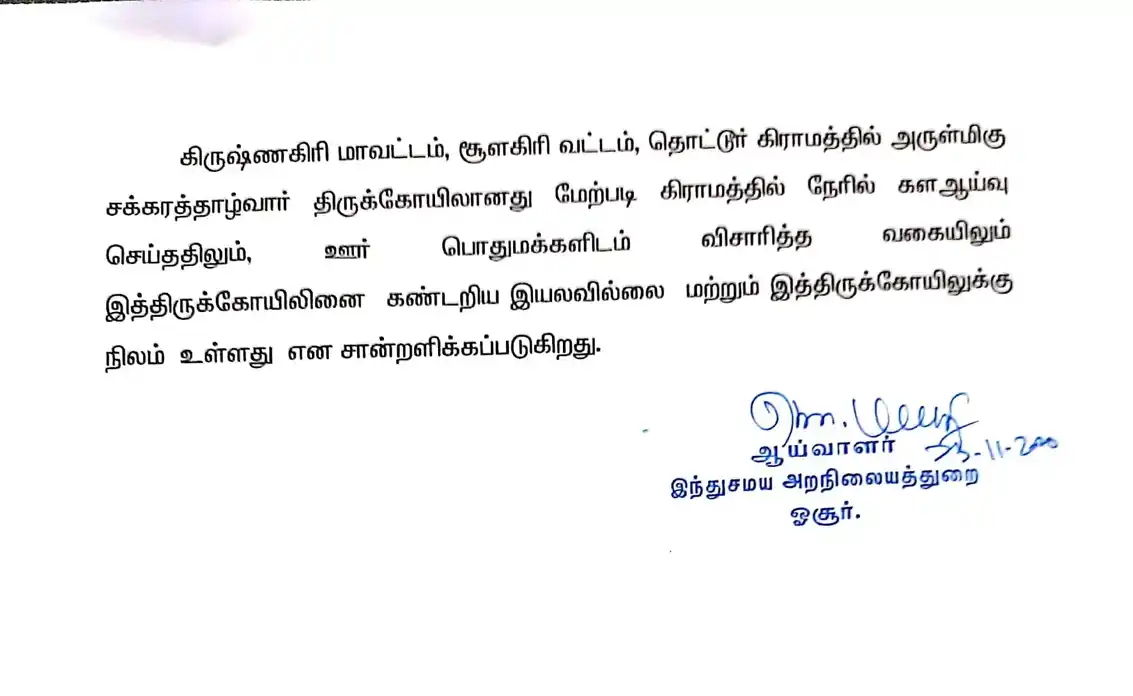 கிருஷ்ணகிரி மாவட்டம், சூளகிரி வட்டம், தொட்டூர் கிராமத்தில் அருள்மிகு
சக்கரத்தாழ்வார் திருக்கோயிலானது மேற்படி கிராமத்தில் நேரில் களஆய்வு
செய்ததிலும், ஊர் பொதுமக்களிடம் விசாரித்த வகையிலும்
இத்திருக்கோயிலினை கண்டறிய இயலவில்லை மற்றும் இத்திருக்கோயிலுக்கு
நிலம் உள்ளது என சான்றளிக்கப்படுகிறது.
ஆய்வாளர்
இந்துசமய அறநிலையத்துறை
ஓசூர்.